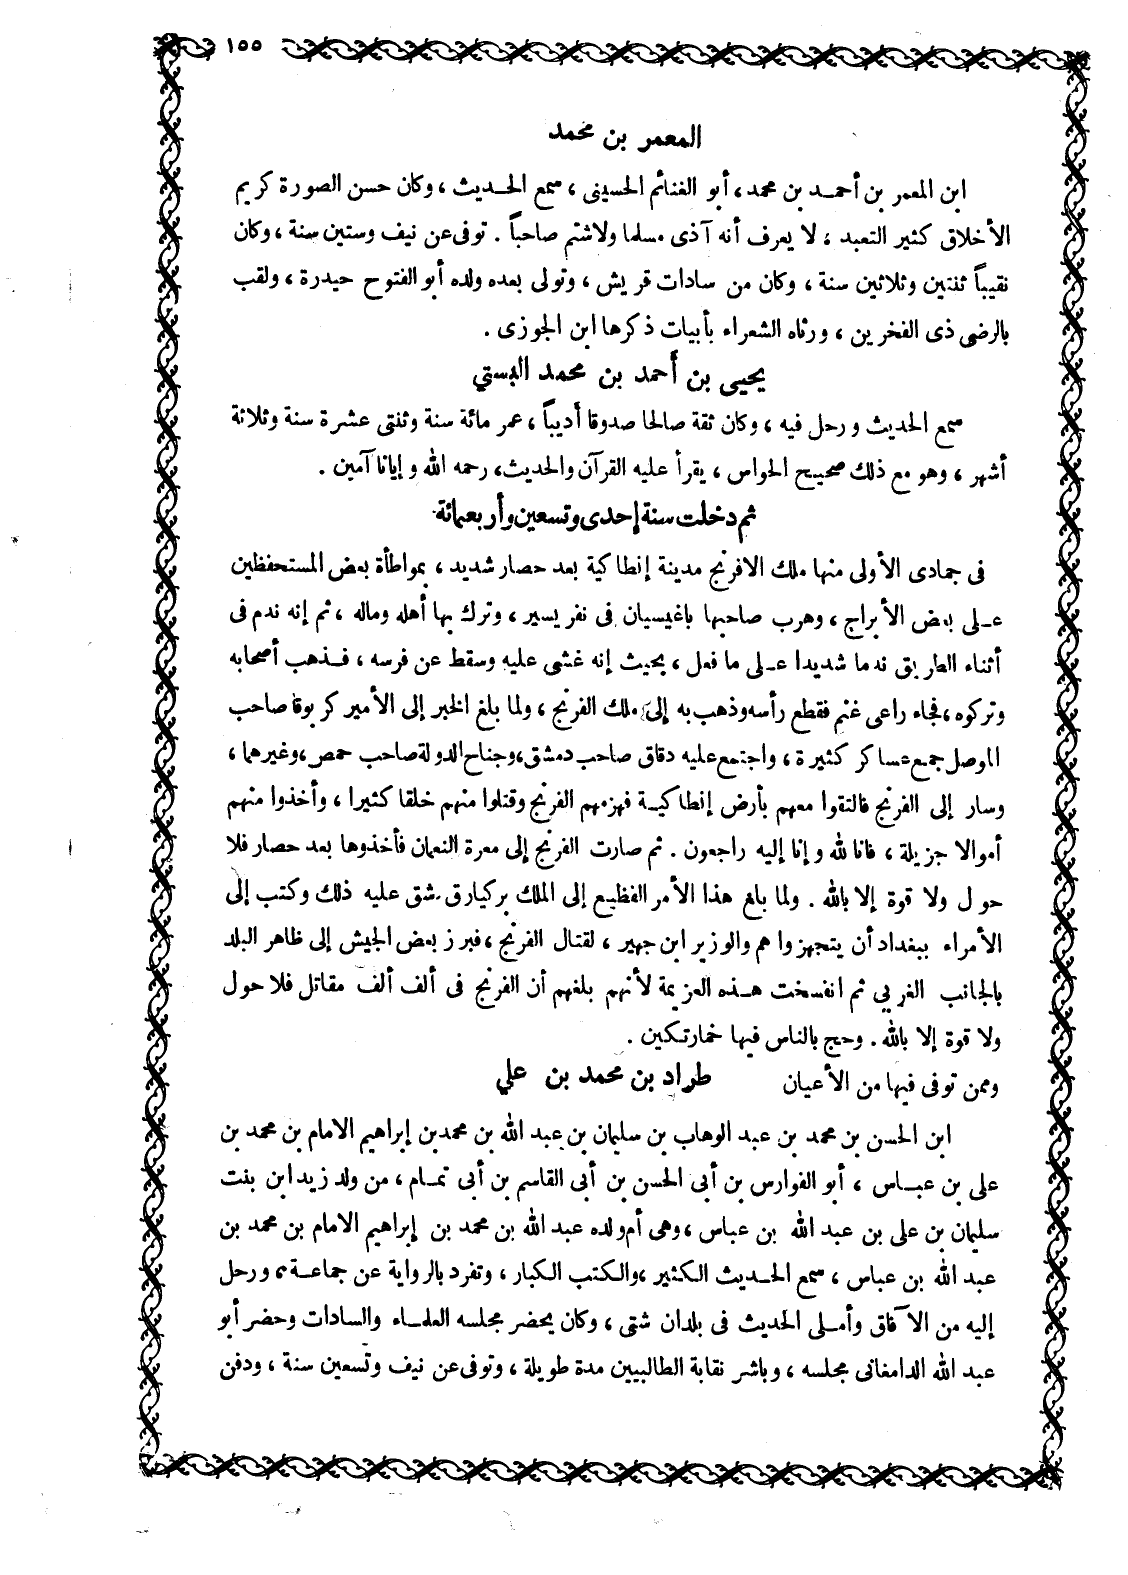 ١٥٥
المعمر بن محمد
ابن المعمر بن أحمد بن محمد، أبو الغنائم الحسينى، سمع الحديث، وكان حسن الصورة كريم
الأخلاق كثير التعبد، لا يعرف أنه آذى مسلما ولا شتم صاحباً. توفى عن نيف وستين سنة، وكان
نقيباً ثنتين وثلاثين سنة، وكان من سادات قريش، وتولى بعده ولده أبو الفتوح حيدرة، ولقب
بالرضى ذى الفخرين، ورثاه الشعراء بأبيات ذكرها ابن الجوزى.
يحيى بن أحمد بن محمد البستي
سمع الحديث ورحل فيه، وكان ثقة صالحا صدوقا أديباً، عمر مائة سنة وثنتى عشرة سنة وثلاثة
أشهر، وهو مع ذلك صحيح الحواس، يقرأ عليه القرآن والحديث، رحمه الله وإيانا آمين.
ثم دخلت سنة إحدى وتسعين وأربعمائة
فى جمادى الأولى منها ملك الافرنج مدينة إنطاكية بعد حصار شديد، بمواطأة بعض المستحفظين
على بعض الأبراج، وهرب صاحبها باغيسيان فى نفر يسير، وترك بها أهله وماله، ثم إنه ندم فى
أثناء الطريق ندما شديدا على ما فعل، بحيث إنه غشى عليه وسقط عن فرسه، فذهب أصحابه
وتركوه، فجاء راعى غنم فقطع رأسه وذهب به إلى ملك الفرنج، ولما بلغ الخبر إلى الأمير كربوقا صاحب
الموصل جمع عساكر كثيرة، واجتمع عليه دقاق صاحب دمشق، وجناح الدولة صاحب حمص، وغيرهما،
وسار إلى الفرنج فالتقوا معهم بأرض إنطاكية فهزمهم الفرنج وقتلوا منهم خلقا كثيرا، وأخذوا منهم
أموالا جزيلة، فانا لله وإنا إليه راجعون. ثم صارت الفرنج إلى معرة النعمان فأخذوها بعد حصار فلا
حول ولا قوة إلا بالله. ولما بلغ هذا الأمر الفظيع إلى الملك بركيارق شق عليه ذلك وكتب إلى
الأمراء ببغداد أن يتجهزوا هم والوزير ابن جهير، لقتال الفرنج، فبرز بعض الجيش إلى ظاهر البلد
بالجانب الغربي ثم انفسخت هذه العزيمة لأنهم بلغهم أن الفرنج فى ألف ألف مقاتل فلا حول
ولا قوة إلا بالله. وحج بالناس فيها خمارتكين.
وممن توفى فيها من الأعيان طراد بن محمد بن علي
ابن الحسن بن محمد بن عبد الوهاب بن سليمان بن عبد الله بن محمد بن إبراهيم الامام بن محمد بن
على بن عباس، أبو الفوارس بن أبى الحسن بن أبى القاسم بن أبى تمام، من ولد زيد ابن بنت
سليمان بن على بن عبد الله بن عباس، وهى أم ولده عبد الله بن محمد بن إبراهيم الامام بن محمد بن
عبد الله بن عباس، سمع الحديث الكثير، والكتب الكبار، وتفرد بالرواية عن جماعة، ورحل
إليه من الآفاق وأملى الحديث فى بلدان شتى، وكان يحضر مجلسه العلماء والسادات وحضر أبو
عبد الله الدامغانى مجلسه، وباشر نقابة الطالبيين مدة طويلة، وتوفى عن نيف وتسعين سنة، ودفن